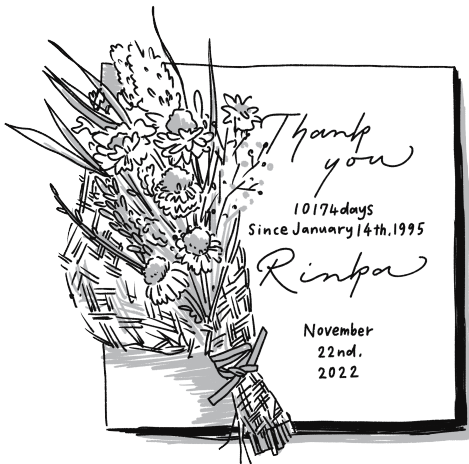 Thank
you
10174days
Since January 14th,1995
Rinka
November
22nd.
2022